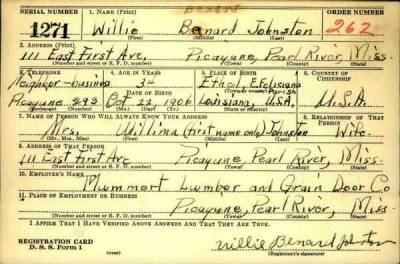 SERIAL NUMBER 1. NAME (Print) ORDER NUMBER
1271 Willie Benard Johnston 262
(First) (Middle) (Last)
2. ADDRESS (Print)
111 East First Ave, Picayune, Pearl River, Miss.
(Number and street or R. F. D. number) (Town) (County) (State)
3. TELEPHONE 4. AGE IN YEARS 5. PLACE OF BIRTH 6. COUNTRY OF CITIZENSHIP
Neighbor-business 34 Ethel, E. Feliciana
DATE OF BIRTH (Town or county) Parish
Picayune 293 Oct. 22, 1906 Louisiana, U.S.A. U.S.A.
(Exchange) (Number) (Mo.) (Day) (Yr.) (State or country)
7. NAME OF PERSON WHO WILL ALWAYS KNOW YOUR ADDRESS 8. RELATIONSHIP OF THAT PERSON
Mrs. Willina (first name only) Johnston Wife.
(Mr., Mrs., Miss) (First) (Middle) (Last)
9. ADDRESS OF THAT PERSON
111 East First Ave Picayune, Pearl River, Miss.
(Number and street or R. F. D. number) (Town) (County) (State)
10. EMPLOYER'S NAME
Lumber and Grain Door Co
11. PLACE OF EMPLOYMENT OR BUSINESS
Picayune, Pearl River, Miss.
(Number and street or R. F. D. number) (Town) (County) (State)
I AFFIRM THAT I HAVE VERIFIED ABOVE ANSWERS AND THAT THEY ARE TRUE.
REGISTRATION CARD
D. S. S. Form 1 Willie Benard Johnston
(Registrant's signature)